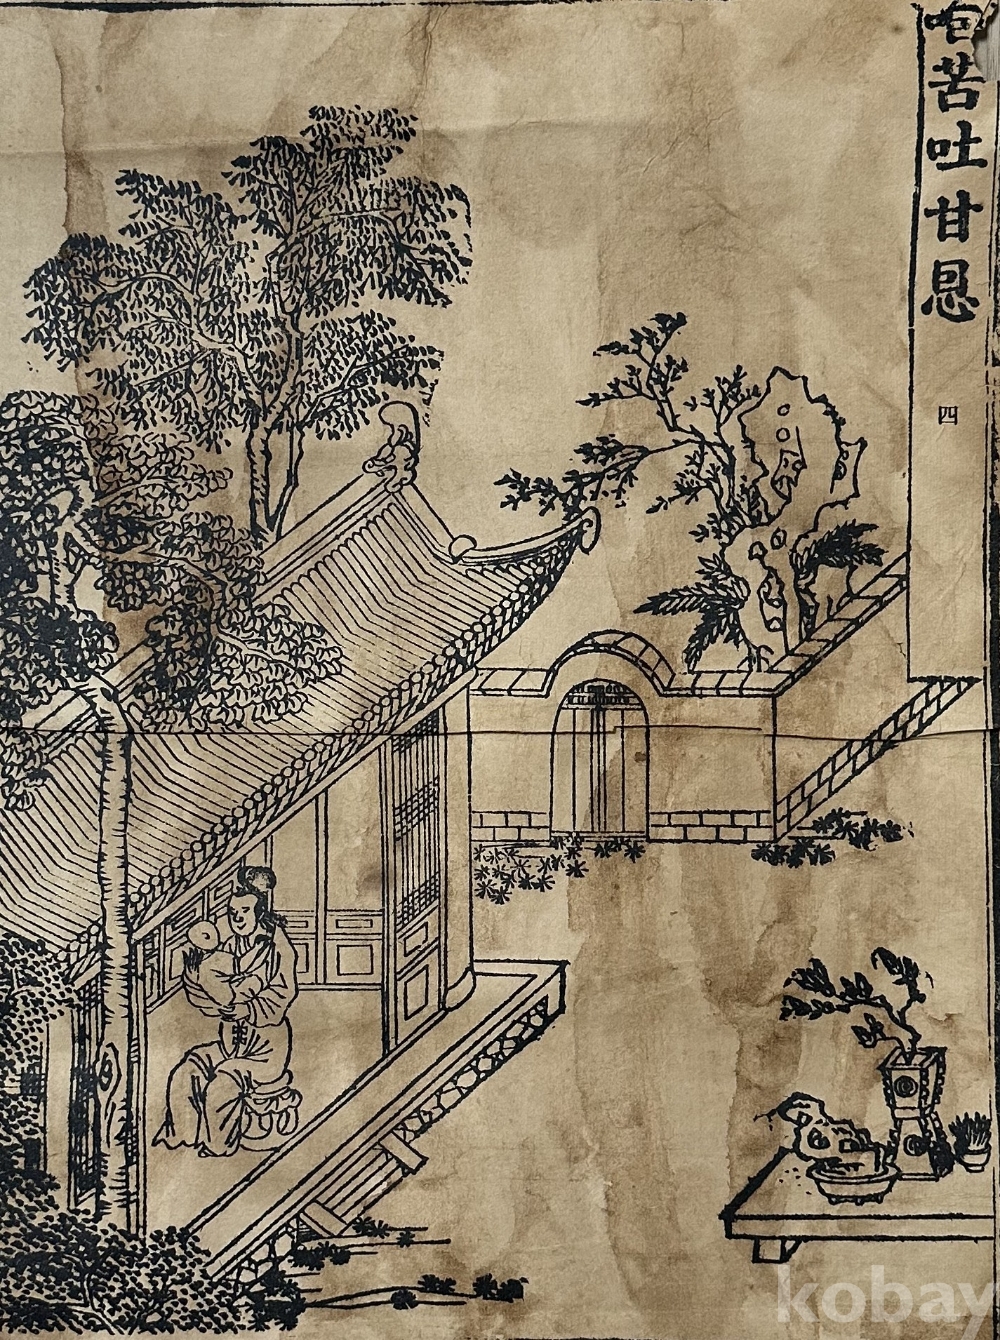 咽苦吐甘恩
四
kobay